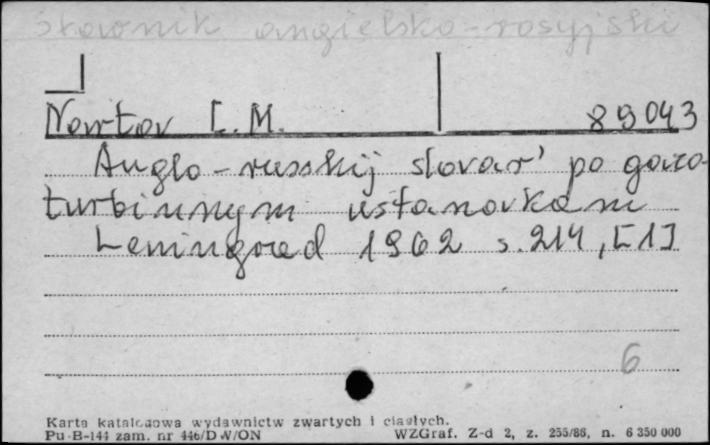 słownik angielsko-rosyjski
L.M. 89043
Anglo-russkij slovar' po gazo-
turbinnym ustanovkam
Leningrad 1962 s.214, [1]
6
Karta katalogowa wydawnictw zwartych i ciągłych.
Pu-B-144 zam. nr 446/DW/ON WZGraf. Z-d 2, z. 255/86, n. 6 350 000